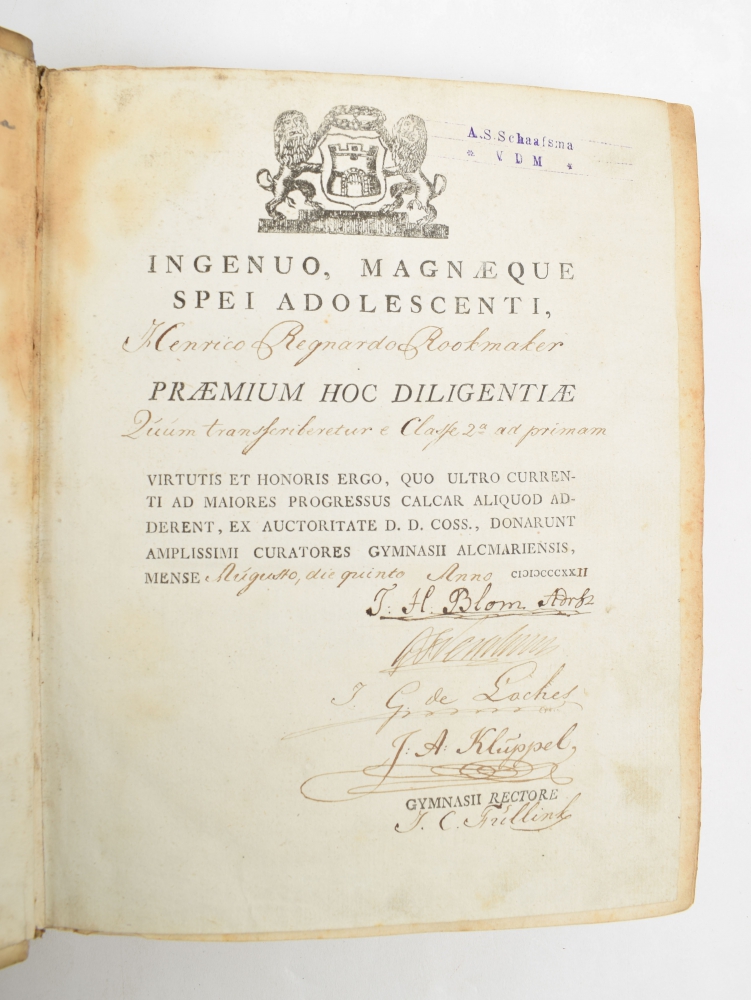 A.S. Schaafsma
* V D M *
INGENUO, MAGNÆQUE
SPEI ADOLESCENTI,
Henrico Regnardo Rookmaker
PRÆMIUM HOC DILIGENTIÆ
Quum transscriberetur e Classe 2a ad primam
VIRTUTIS ET HONORIS ERGO, QUO ULTRO CURREN-
TI AD MAIORES PROGRESSUS CALCAR ALIQUOD AD-
DERENT, EX AUCTORITATE D. D. COSS., DONARUNT
AMPLISSIMI CURATORES GYMNASII ALCMARIENSIS,
MENSE Augusto, die quinto Anno CIↃIↃCCCXXII
J: H. Blom
J. G. de Loches
J: A: Kluppel,
GYMNASII RECTORE
J. C. Fullink